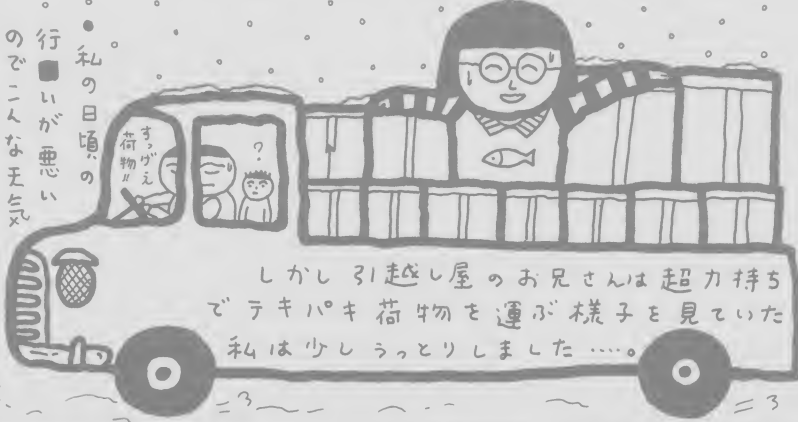 ●私の日頃の
行■いが悪い
のでこんな天気
すっげえ
荷物!!
?
しかし引越し屋のお兄さんは超力持ち
でテキパキ荷物を運ぶ様子を見ていた
私は少しうっとりしました……。